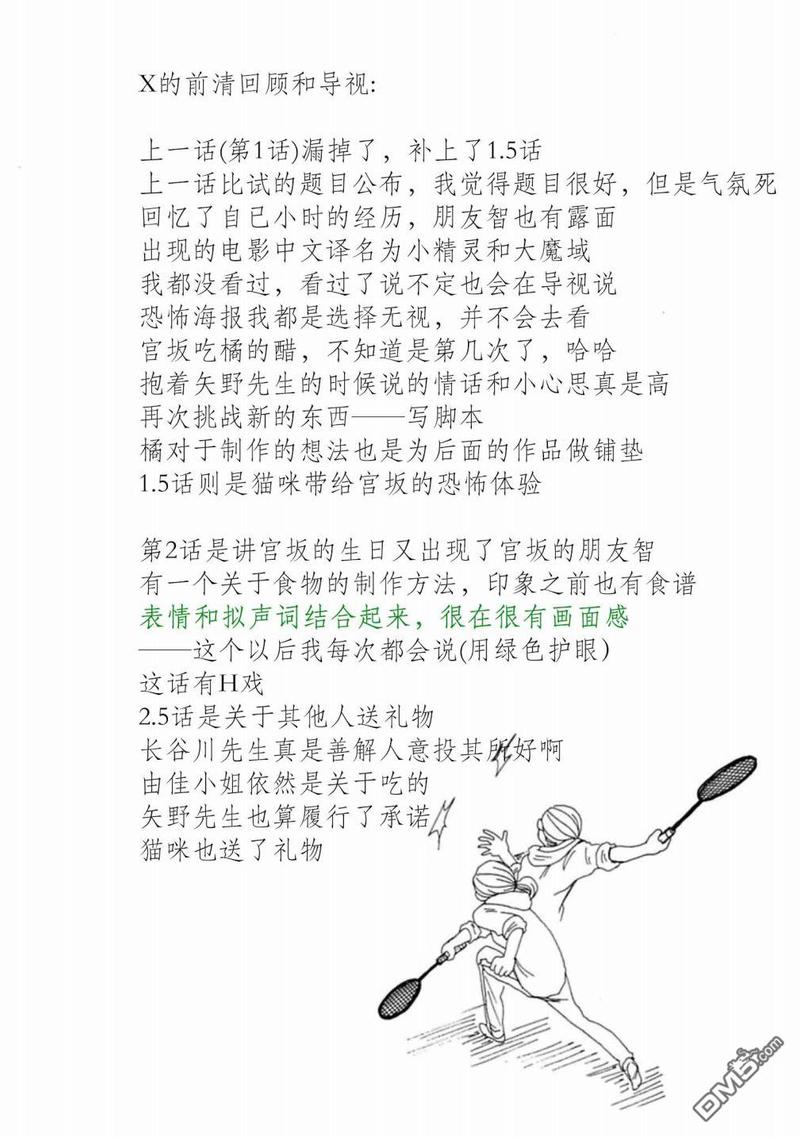 X的前清回顾和导视:
上一话(第1话)漏掉了，补上了1.5话
上一话比试的题目公布，我觉得题目很好，但是气氛死
回忆了自己小时的经历，朋友智也有露面
出现的电影中文译名为小精灵和大魔域
我都没看过，看过了说不定也会在导视说
恐怖海报我都是选择无视，并不会去看
宫坂吃橘的醋，不知道是第几次了，哈哈
抱着矢野先生的时候说的情话和小心思真是高
再次挑战新的东西——写脚本
橘对于制作的想法也是为后面的作品做铺垫
1.5话则是猫咪带给宫坂的恐怖体验
第2话是讲宫坂的生日又出现了宫坂的朋友智
有一个关于食物的制作方法，印象之前也有食谱
表情和拟声词结合起来，很在很有画面感
——这个以后我每次都会说(用绿色护眼)
这话有H戏
2.5话是关于其他人送礼物
长谷川先生真是善解人意投其所好啊
由佳小姐依然是关于吃的
矢野先生也算履行了承诺
猫咪也送了礼物
DM5.com